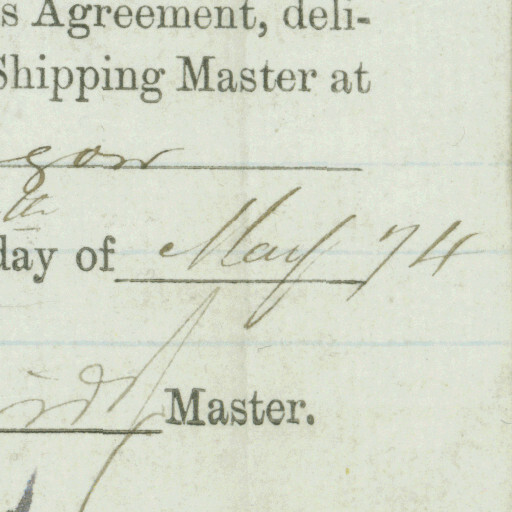 s Agreement, deli-
Shipping Master at
gow
th
day of May 74
Master.